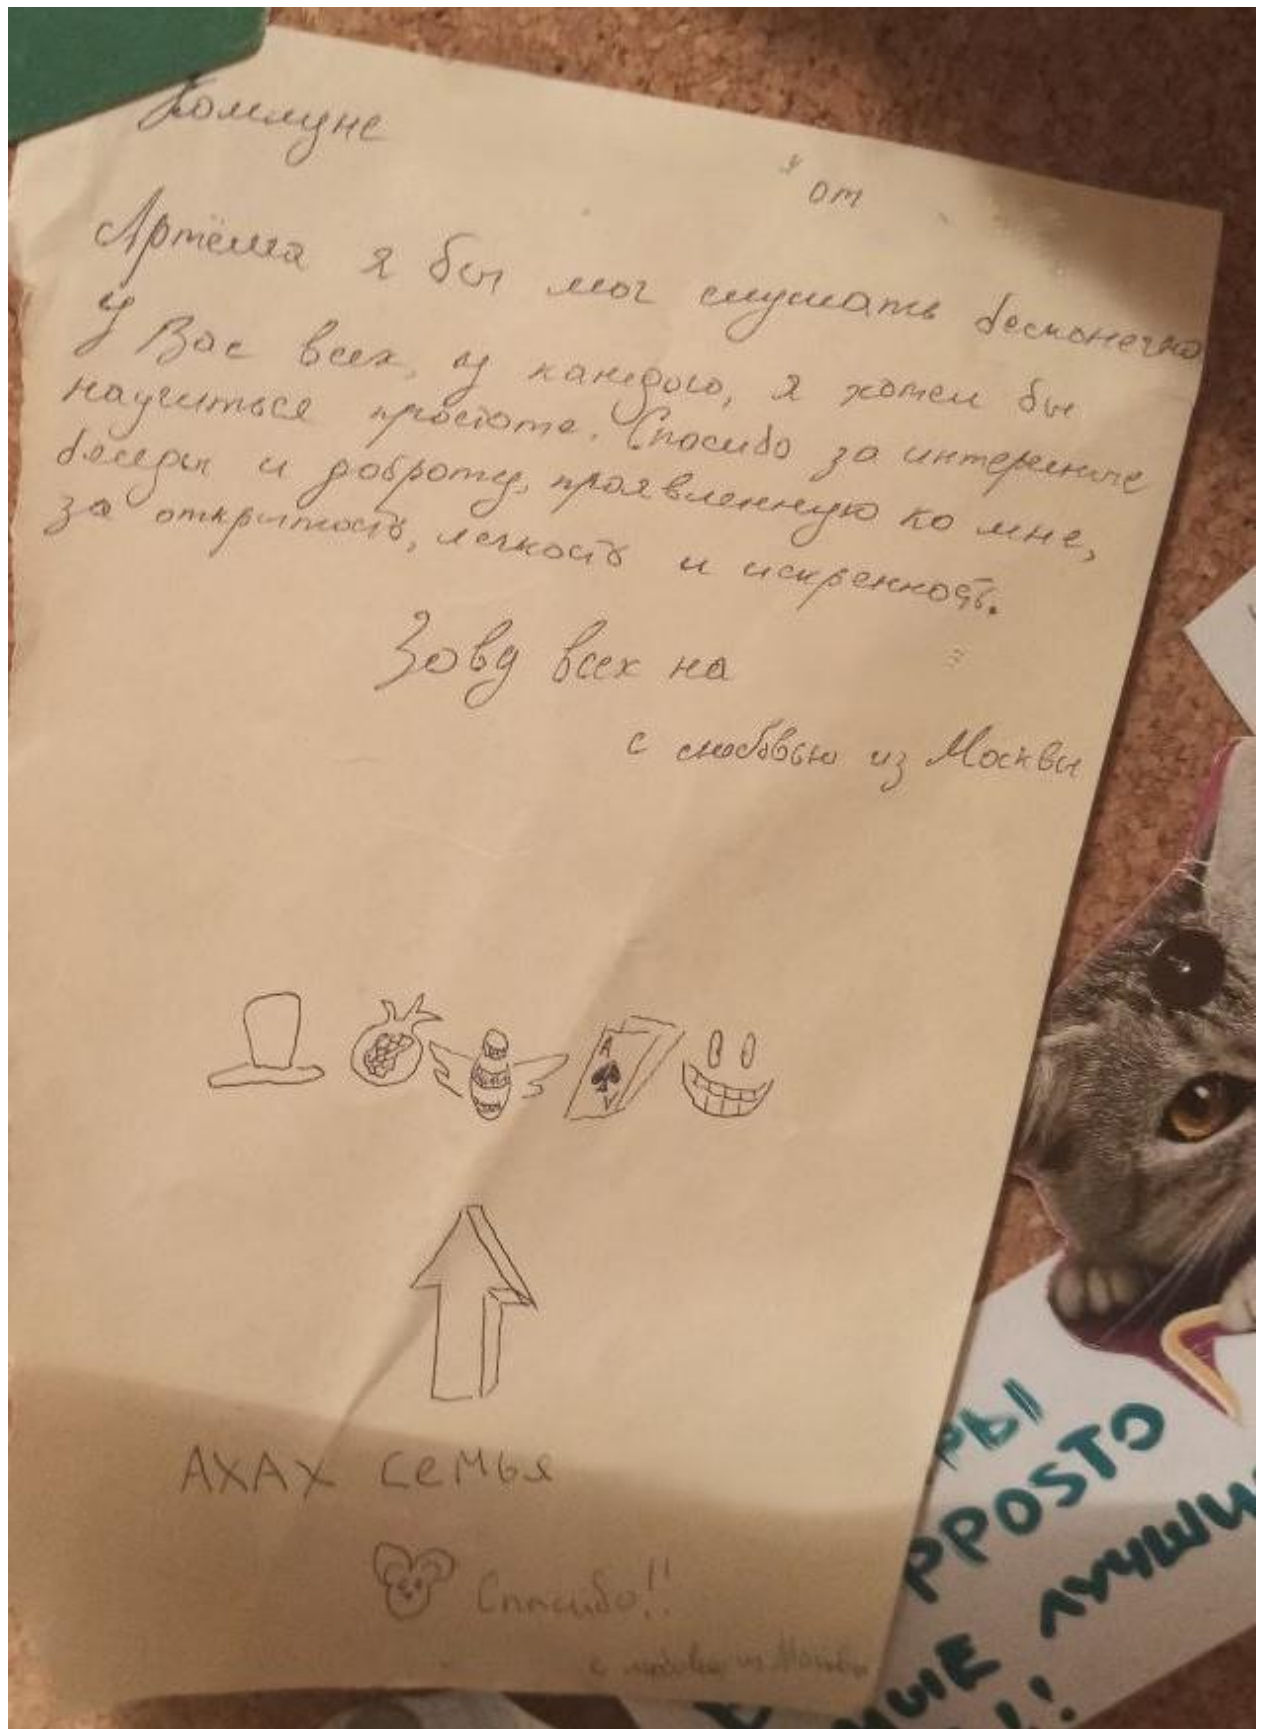 Коммуне
от
Артёма я бы мог слушать бесконечно
у Вас всех, у каждого, я хотел бы
научиться простоте. Спасибо за интересные
беседы и доброту, проявленную ко мне,
за открытость, легкость и искренность.
Зову всех на
с любовью из Москвы
A
A
АХАХ семья
Спасибо!!
с любовью из Москвы
РЫ
PPOSTO
ЛУЧШИ
ЫЕ
!